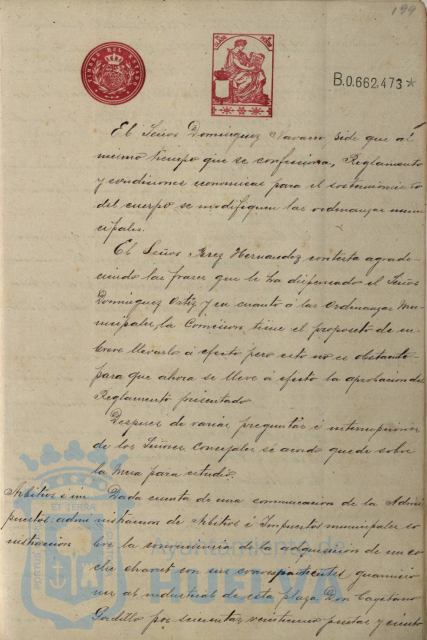 199
B.0.662.473*
El Señor Dominguez Navarro, pide que al
mismo tiempo que se confecciona, Reglamento
y condiciones economicas para el sostenimiento
del cuerpo se modifiquen las ordenanzas muni
cipales.
El Señor Perez Hernandez contesta agrade-
ciendo las frases que le ha dispensado el Señor
Dominguez Ortiz y en cuanto á las Ordenanzas Mu-
nicipales, la Comision, tiene el proposito de en
breve llevarlo á efecto pero esto no es obstaculo
para que ahora se lleve á efecto la aprobacion del
Reglamento presentado
Despues de varias preguntas é interrupciones
de los Señores Concejales se acordo quede sobre
la Mesa para estudio.
Arbitrios é im
puestos: admi
nistracion
Dada cuenta de una comunicacion de la Admi
nistracion de Arbitrios é Impuestos municipales so
bre la conveniencia de la adquisicion de un co
che charet con sus correspondientes guarnicio
nes al industrial de esta plaza Don Cayetano
Gordillo por pesetas y ciento
Ayuntamiento de
HUELVA